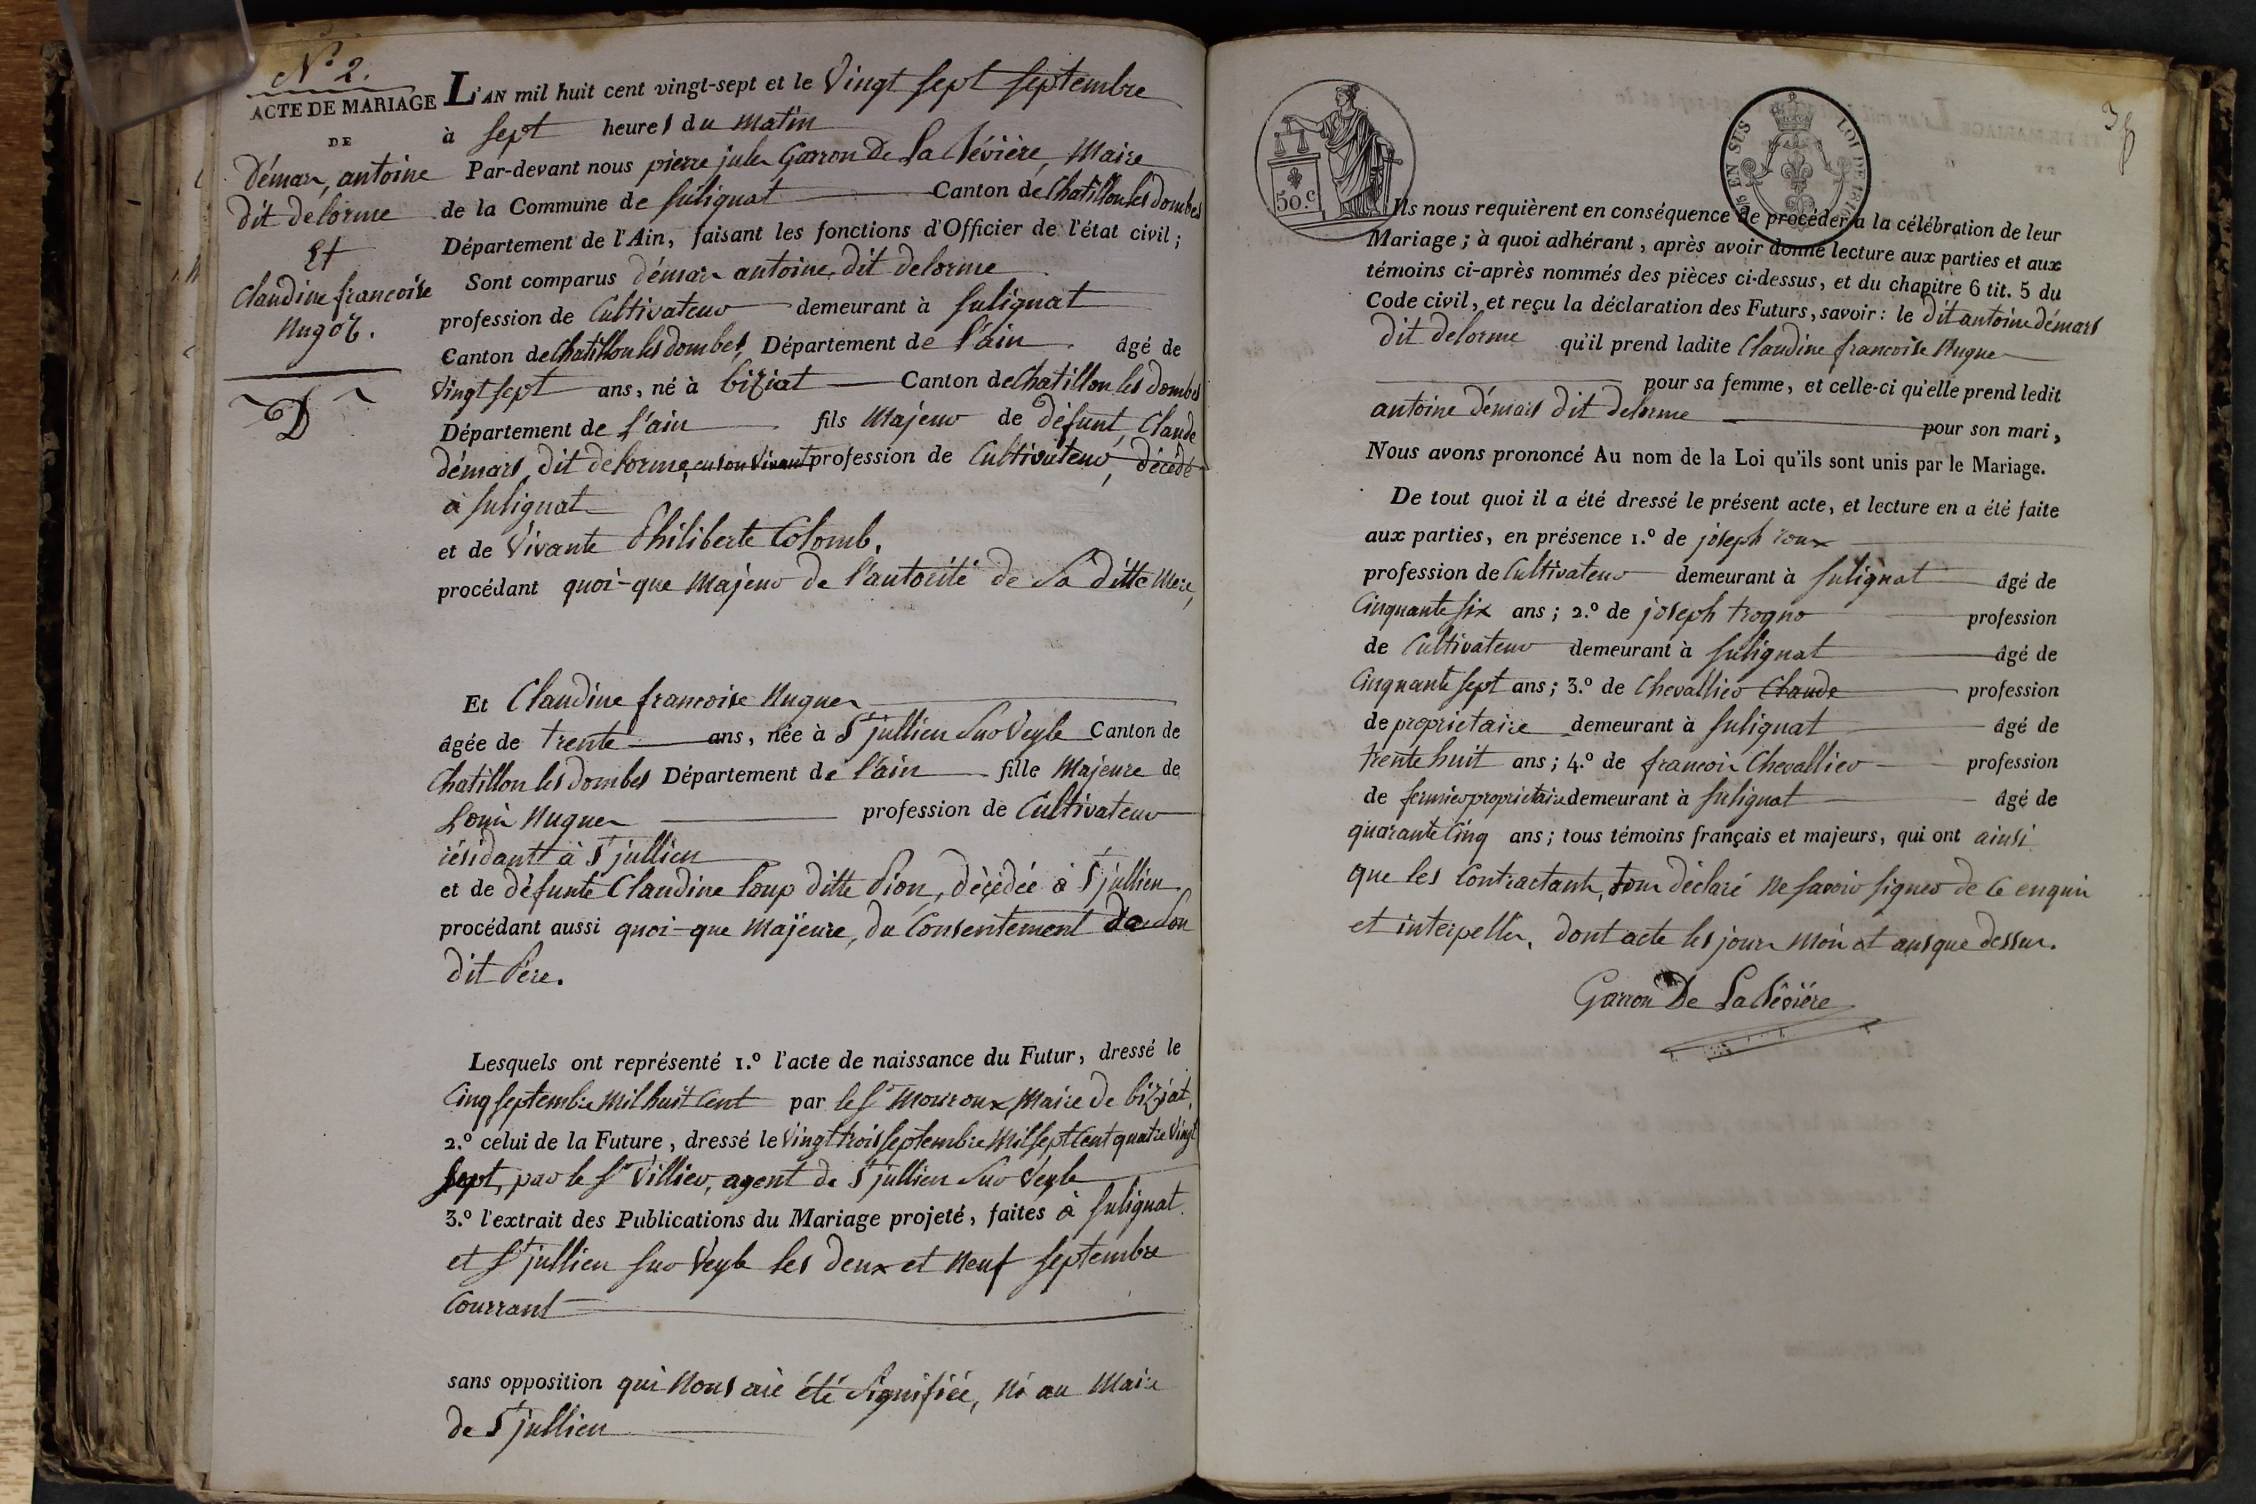 N.o 2.
ACTE DE MARIAGE
DE
démars, antoine
dit delorme
Et
Claudine francoise
Nugoz.
D
L'AN mil huit cent vingt-sept et le Vingt sept septembre
à sept heures du matin
Par-devant nous pierre jules Garron De La Bévière, Maire
de la Commune de Sulignat Canton de Chatillon les dombes
Département de l'Ain, faisant les fonctions d'Officier de l'état civil;
Sont comparus démars antoine, dit delorme
profession de Cultivateur demeurant à Sulignat
Canton de Chatillon les dombes, Département de l'ain âgé de
Vingt sept ans, né à biziat Canton de Chatillon les dombes
Département de l'ain fils Majeur de défunt Claude
démars, dit delorme, en son vivant profession de Cultivateur, décédé
à Sulignat
et de Vivante Philiberte Colomb.
procédant quoi-que Majeur de l'autorité de Sa ditte Mere,
Et Claudine francoise Nugues
âgée de trente ans, née à St jullien Sur Veyle Canton de
Chatillon les dombes Département de l'ain fille Majeure de
Louis Nugues profession de Cultivateur
résidant à St jullien
et de défunte Claudine Loup ditte Pion, décédée à St jullien
procédant aussi quoi-que Majeure, du Consentement de Son
dit Père.
Lesquels ont représenté 1.o l'acte de naissance du Futur, dressé le
Cinq septembre Mil huit Cent par le Sr Mouroux, Maire de biziat,
2.o celui de la Future, dressé le Vingt trois septembre Mil sept Cent quatre Vingt
sept, par le Sr Villier, agent de St jullien Sur Veyle
3.o l'extrait des Publications du Mariage projeté, faites à Sulignat
et St jullien Sur Veyle les deux et Neuf septembre
Courrant
sans opposition qui Nous aie été Signifiée, Ni au Maire
de St jullien
50.c
EN SUS
LOI DE
38
Ils nous requièrent en conséquence de procéder à la célébration de leur
Mariage; à quoi adhérant, après avoir donné lecture aux parties et aux
témoins ci-après nommés des pièces ci-dessus, et du chapitre 6 tit. 5 du
Code civil, et reçu la déclaration des Futurs, savoir: le dit antoine démars
dit delorme qu'il prend ladite Claudine francoise Nugues
pour sa femme, et celle-ci qu'elle prend ledit
antoine démars dit delorme pour son mari,
Nous avons prononcé Au nom de la Loi qu'ils sont unis par le Mariage.
De tout quoi il a été dressé le présent acte, et lecture en a été faite
aux parties, en présence 1.o de joseph roux
profession de Cultivateur demeurant à Sulignat âgé de
Cinquante six ans; 2.o de joseph trogno profession
de Cultivateur demeurant à Sulignat âgé de
Cinquante sept ans; 3.o de Chevallier Claude profession
de proprietaire demeurant à Sulignat âgé de
trente huit ans; 4.o de francois Chevallier profession
de fermier proprietaire demeurant à Sulignat âgé de
quarante Cinq ans; tous témoins français et majeurs, qui ont ainsi
que les Contractants, tous déclaré Ne Savoir Signer de Ce enquis
et interpellés, dont acte les jour Mois et ans que dessus.
Garron De La Bévière